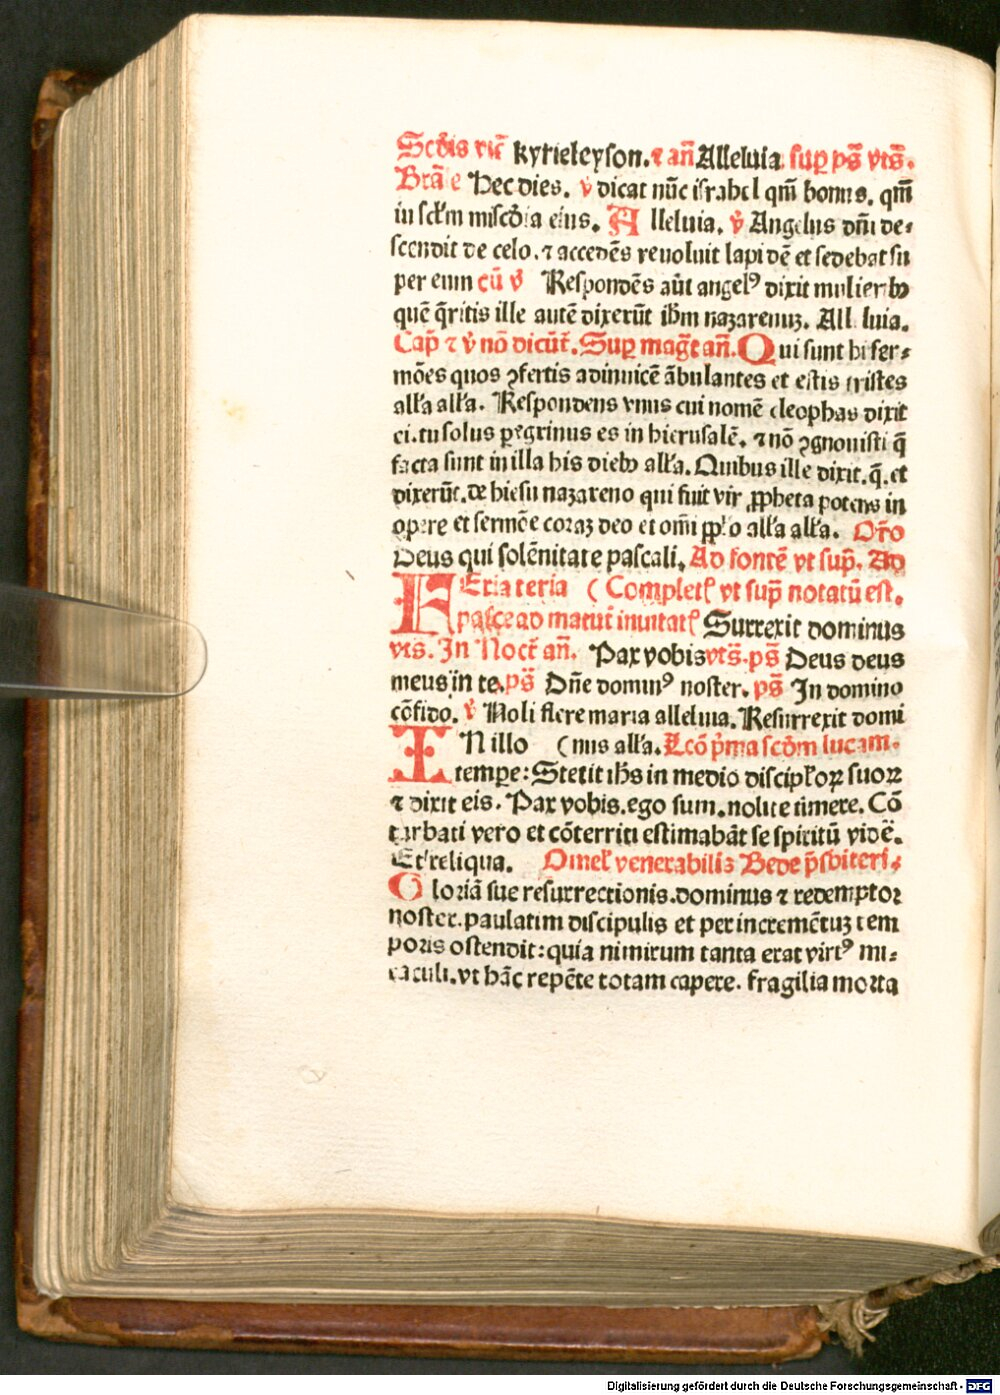 Scd̄is vīc̄ kyrieleyson. ⁊ an̄ Alleluia sup̱ ps̄ vts̄.
Grāle Hec dies. v̄ dicat nūc israhel qm̄ bonus. qm̄
in sclm̄ miscdīa eius. Alleluia. v̄ Angelus dn̄i de⸗
scendit de celo. ⁊ accedēs reuoluit lapidē et sedebat su
per eum cū v̄ Respondēs aūt angelꝰ dixit mulierib⁹
quē q̄ritis ille autē dixerūt ihm̄ nazarenuꝫ. Alleluia.
Cap̄ ⁊ v̄ nō dicūt̄. Sup̱ maḡt an̄. Qui sunt hi ser⸗
mōes quos ꝯfertis adinuicē ābulantes et estis tristes
alla alla. Respondens vnus cui nomē cleophas dixit
ei. tu solus peregrinus es in hierusalē. ⁊ nō ꝯgnouisti q̄
facta sunt in illa his dieb⁹ alla. Quibus ille dixit. q̄. et
dixerūt. de hiesu nazareno qui fuit vir ꝓpheta potens in
opere et sermōe coraꝫ deo et om̄i pplo alla alla. Or̄o
Deus qui solēnitate pascali. Ad fontē vt sup̄. Ad
FEria tercia ( Completꝭ vt sup̄ notatū est.
pasce ad matut̄ inuitatꝭ Surrexit dominus
vts̄. In Noct̄ an̄. Pax vobis vts̄. ps̄ Deus deus
meus in te. ps̄ Dn̄e dominꝰ noster. ps̄ In domino
cōfido. v̄ Noli flere maria alleluia. Resurrexit domi
IN illo ( nus alla. Lcō p̄ma scdm̄ lucam.
tempe: Stetit ihs̄ in medio disciploꝝ suoꝝ
⁊ dixit eis. Pax vobis. ego sum. nolite timere. Cō
turbati vero et cōterriti estimabāt se spiritū vidē.
Et reliqua. Omel̄ venerabilis Bede p̄sbiteri⸗
Gloriā sue resurrectionis. dominus ⁊ redemptor
noster. paulatim discipulis et per incremētuꝫ tem
poris ostendit: quia nimirum tanta erat virtꝰ mi⸗
raculi. vt hāc repēte totam capere. fragilia morta
Digitalisierung gefördert durch die Deutsche Forschungsgemeinschaft - DFG